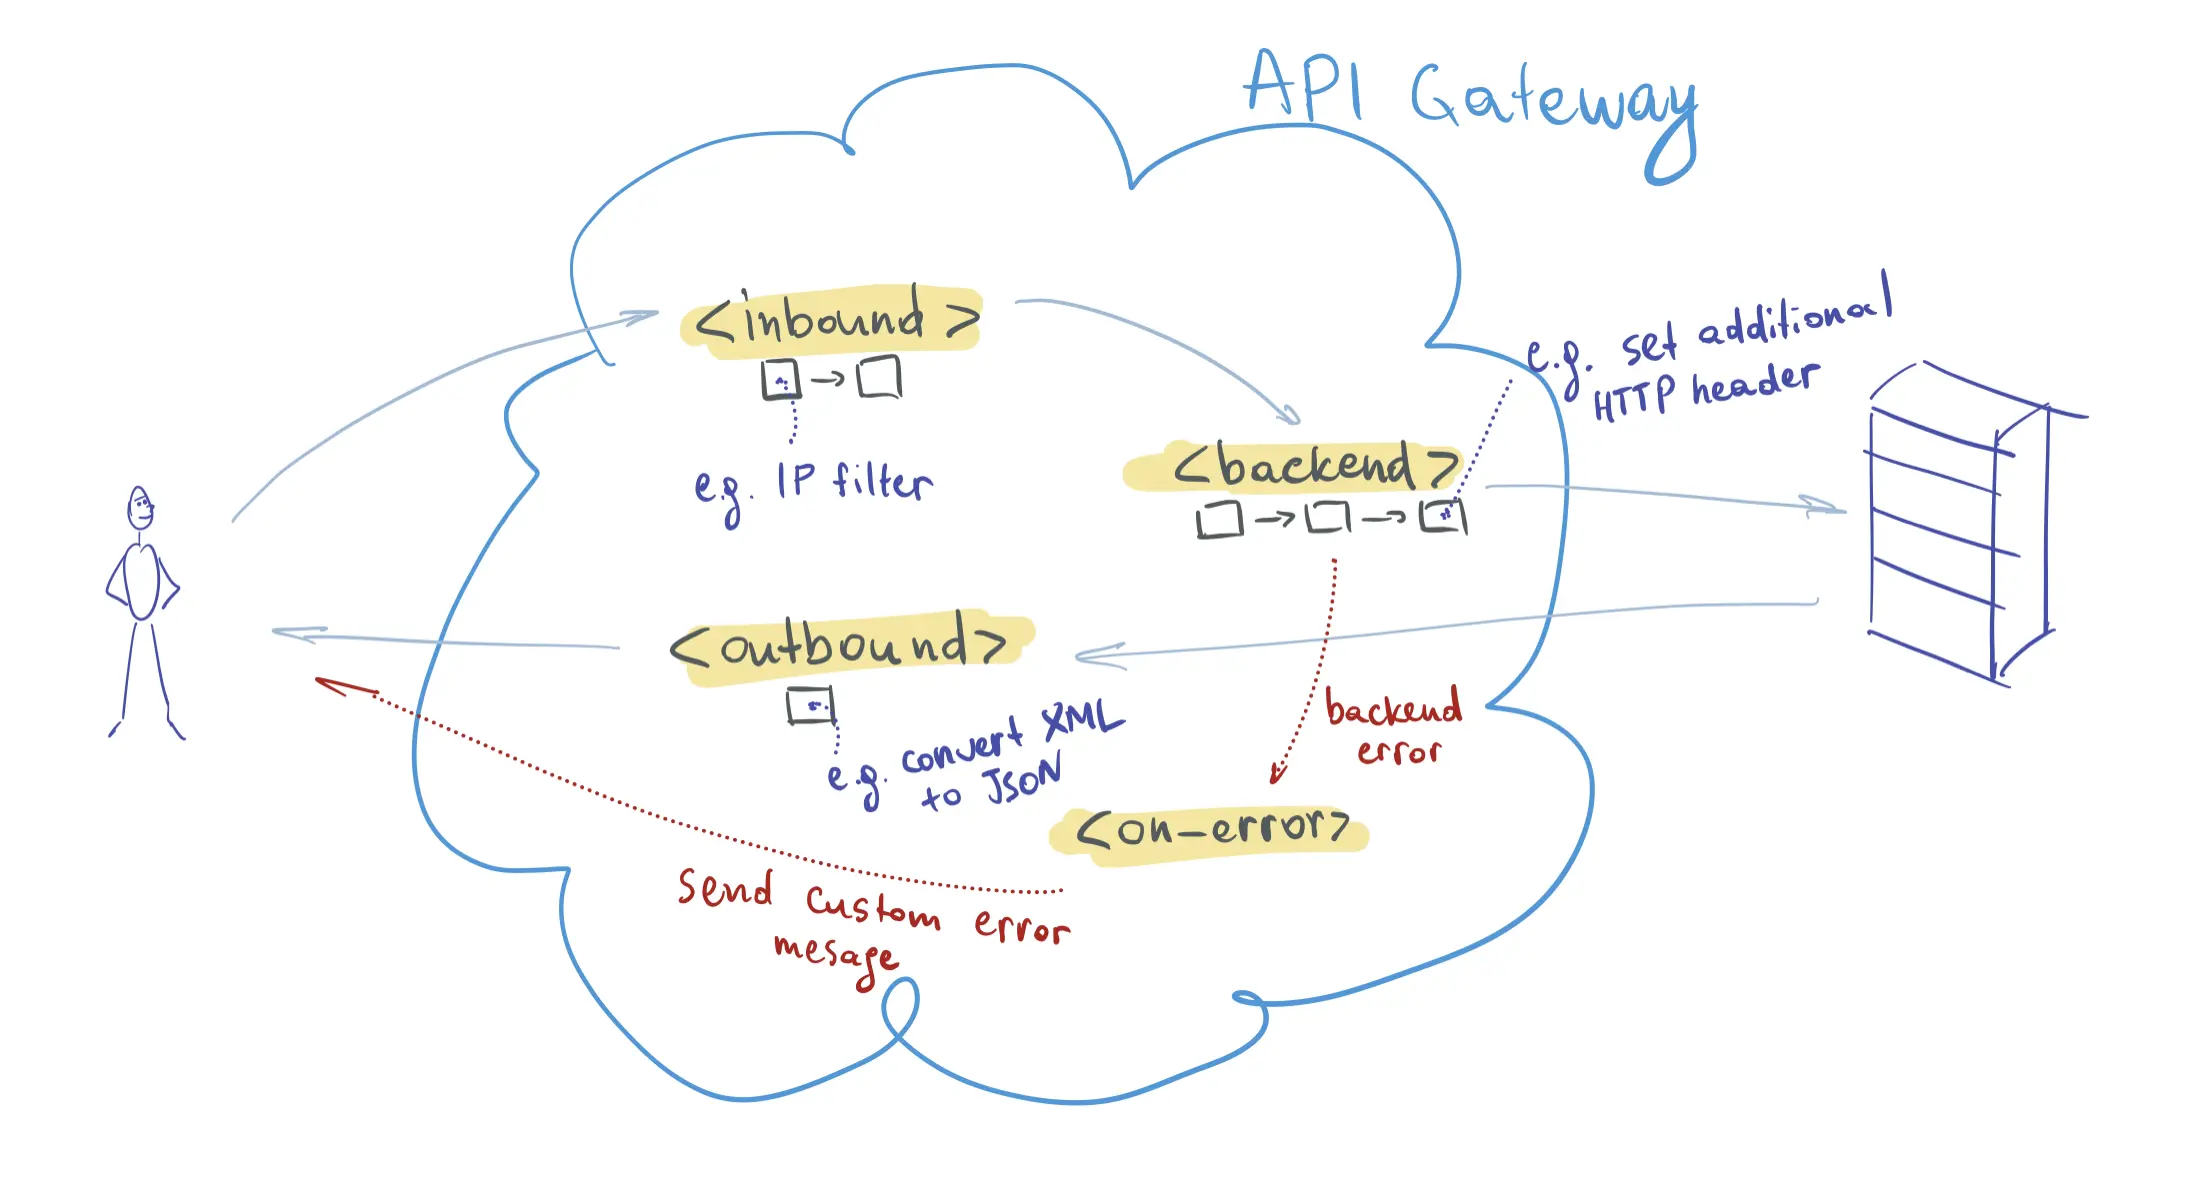 API Gateway
<inbound>
e.g. IP filter
e.g. set additional
HTTP header
<backend>
<outbound>
e.g. convert XML
to JSON
backend
error
<on-error>
Send custom error
mesage